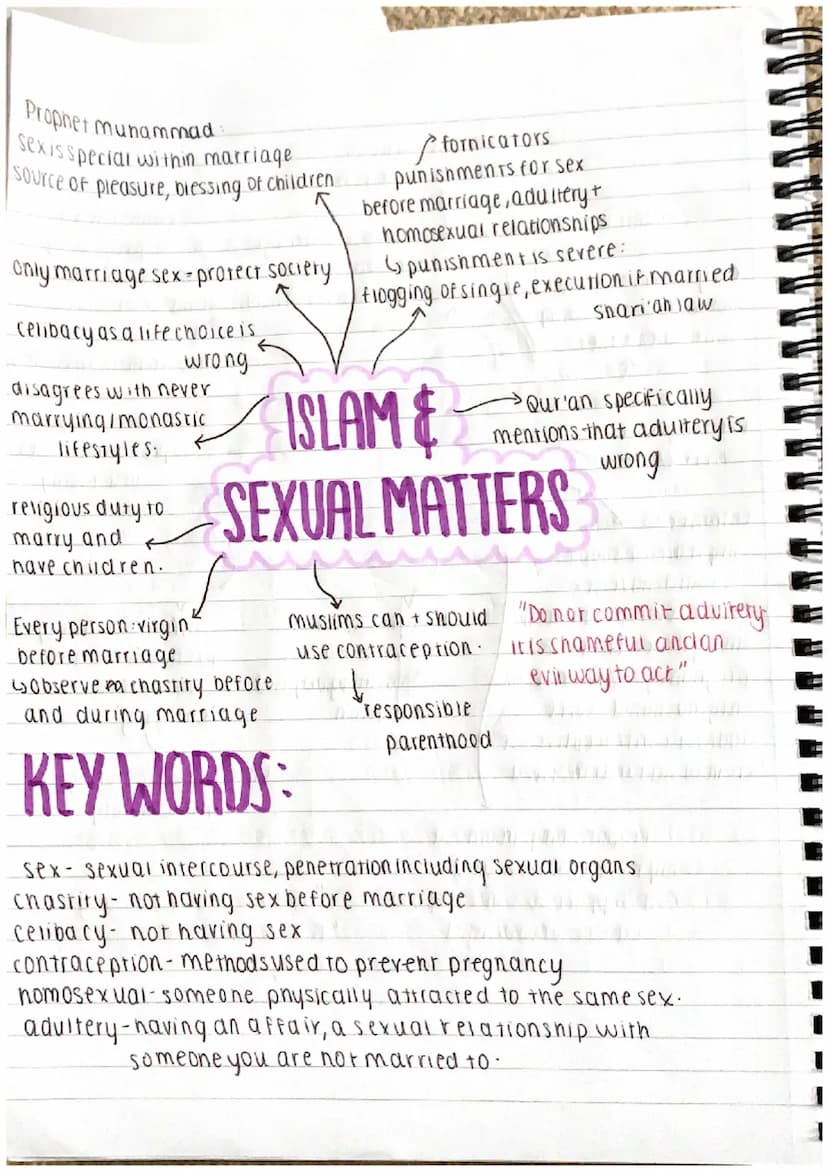 Prophet muhammad:
sex is special within marriage
source of pleasure, blessing of children
fornicators
punishments for sex
before marriage, adultery +
homosexual relationships
↳ punishment is severe:
flogging of single, execution if married
shari'ah law
only marriage sex = protect society
celibacy as a life choice is
wrong
disagrees with never
marrying/monastic
lifestyles.
ISLAM &
SEXUAL MATTERS
Qur'an specifically
mentions that adultery is
wrong
religious duty to
marry and
have children.
Every person: virgin
before marriage
↳ observe chastity before
and during marriage
muslims can + should
use contraception.
responsible
parenthood
"Do not commit adultery
it is shameful and an
evil way to act"
KEY WORDS:
sex - sexual intercourse, penetration including sexual organs
chastity - not having sex before marriage
celibacy - not having sex
contraception - methods used to prevent pregnancy
homosexual - someone physically attracted to the same sex.
adultery - having an affair, a sexual relationship with
someone you are not married to.